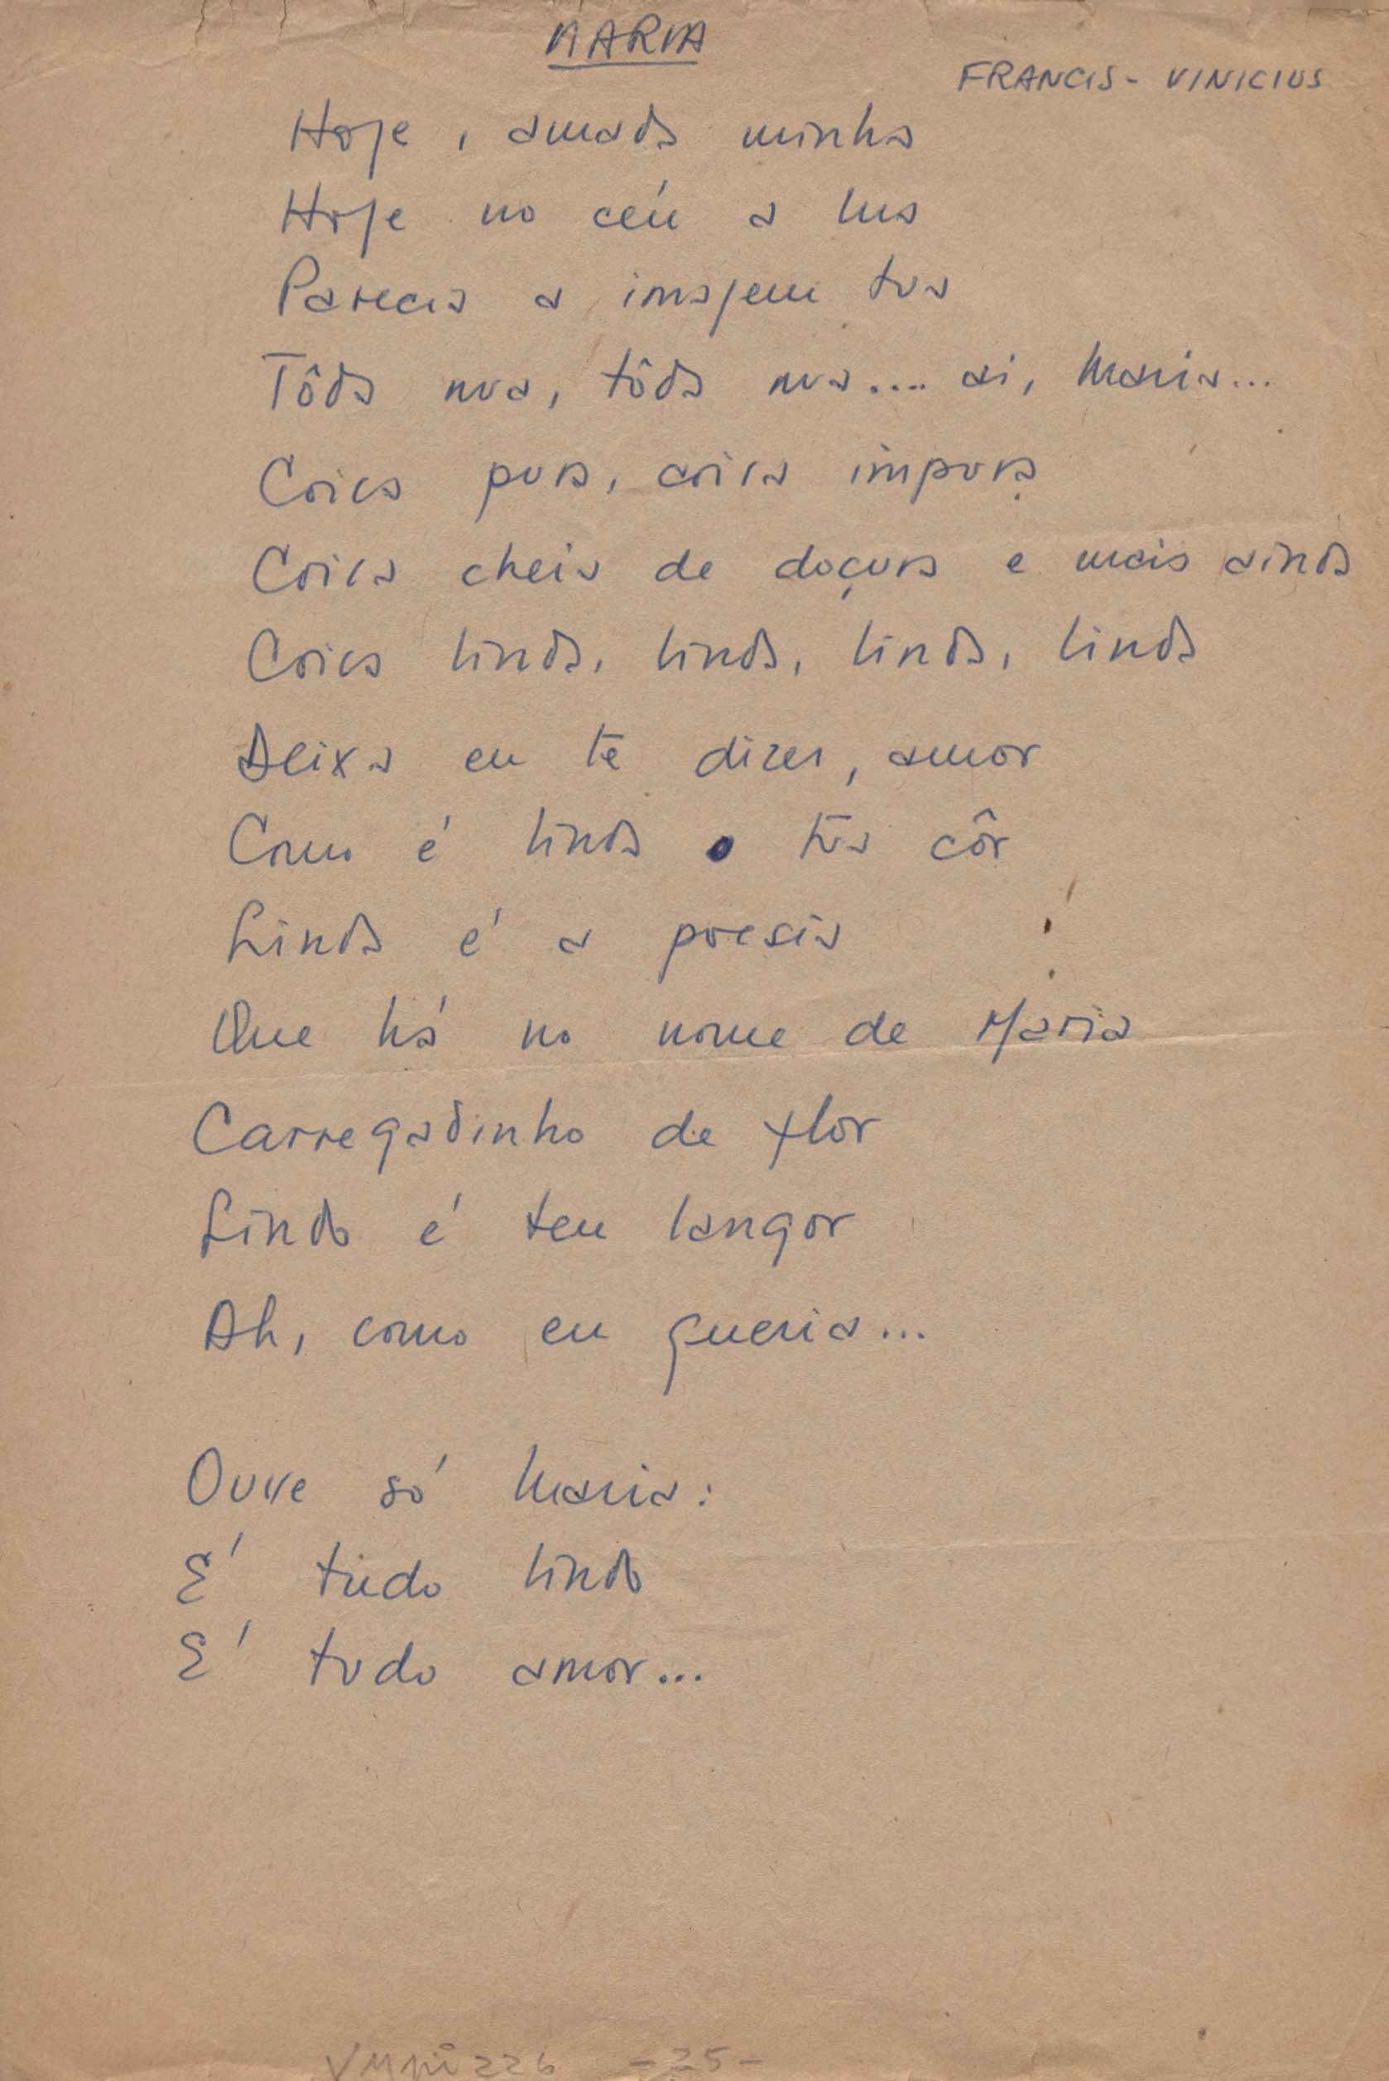 MARIA
FRANCIS - VINICIUS
Hoje, amada minha
Hoje no céu a lua
Parecia a imagem tua
Tôda nua, tôda nua.... ai, Maria...
Coisa pura, coisa impura
Coisa cheia de doçura e mais ainda
Coisa linda, linda, linda, linda
Deixa eu te dizer, amor
Como é linda a tua côr
Linda é a poesia
Que há no nome de Maria
Carregadinho de flor
Lindo é teu langor
Ah, como eu queria...
Ouve só Maria:
É tudo lindo
É tudo amor...
226 - 25 -